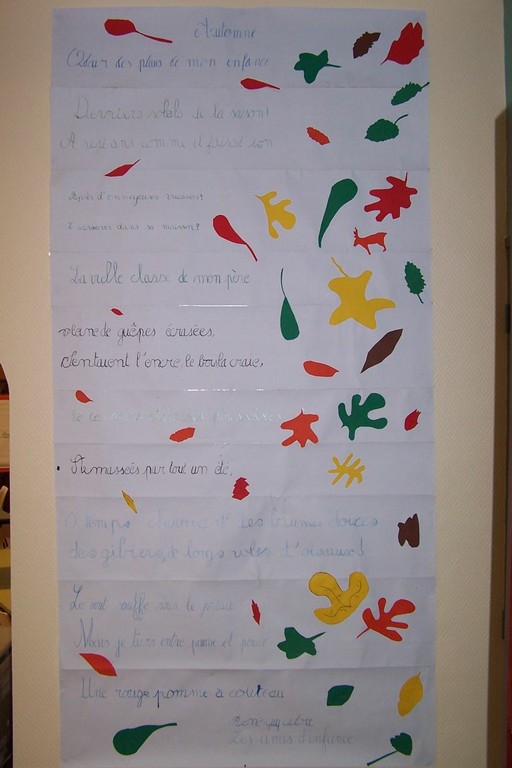 Automne
Odeur des pluies de mon enfance
Derniers soleils de la saison!
A sept ans comme il faisait bon
Après d'ennuyeuses vacances!
dans sa maison!
La vielle classe de mon père
de guêpes écrasées,
Sentaient l'encre, le bois la craie,
par tout un été,
O temps charmant des brumes douces
des gibiers, de longs vols d'oiseaux!
Le vent souffle sous le préau
je tiens entre paume et pouce
Une rouge pomme à couteau
Les amis d'enfance